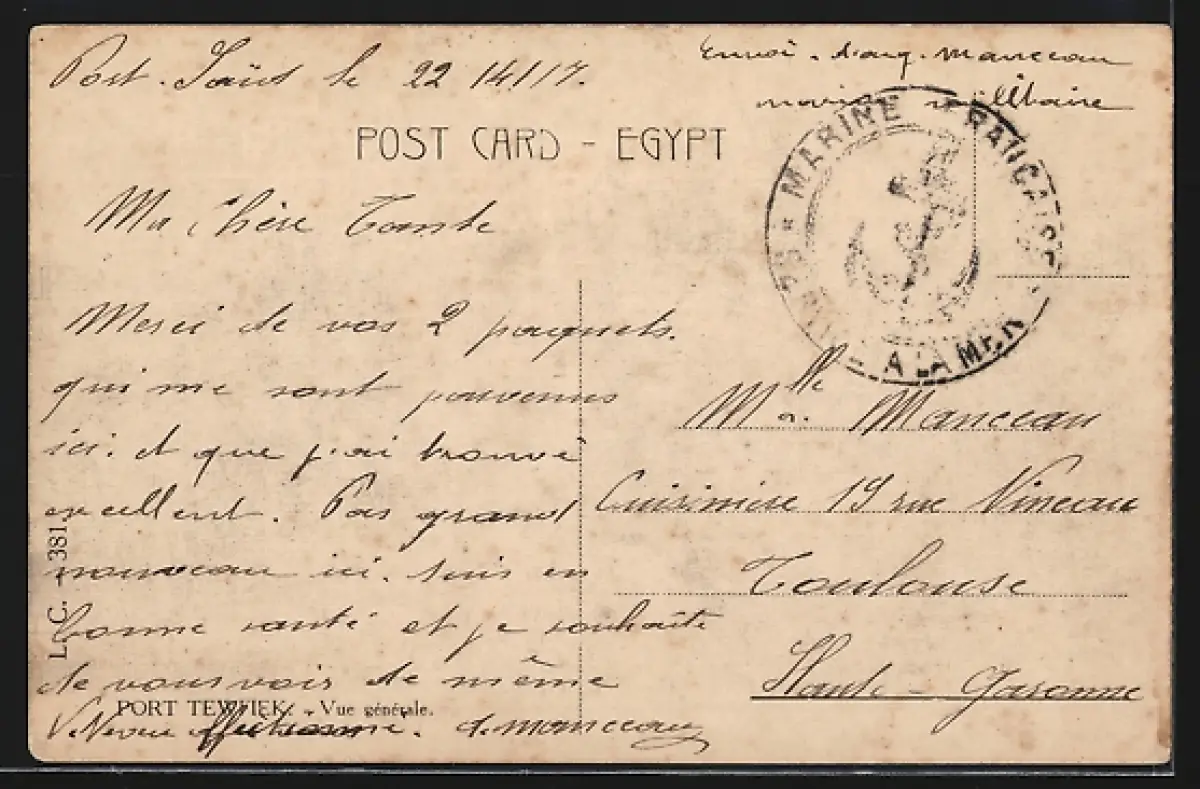 Port-Saïd le 22/4/17.
Envoi. d'aug. Manceau
marin militaire
POST CARD - EGYPT
MARINE FRANCAISE
A LA MER
Ma chère Tante
Merci de vos 2 paquets.
qui me sont parvenus
ici. et que j'ai trouvé
excellent. Pas grand
nouveau ici. suis en
bonne santé et je souhaite
de vous voir de même
V. Neveu affectionné. A. Manceau
Mlle A. Manceau
Cuisinière 19 rue Vineau
Toulouse
Haute-Garonne
L. C. 381.
PORT TEWFIEK. - Vue générale.